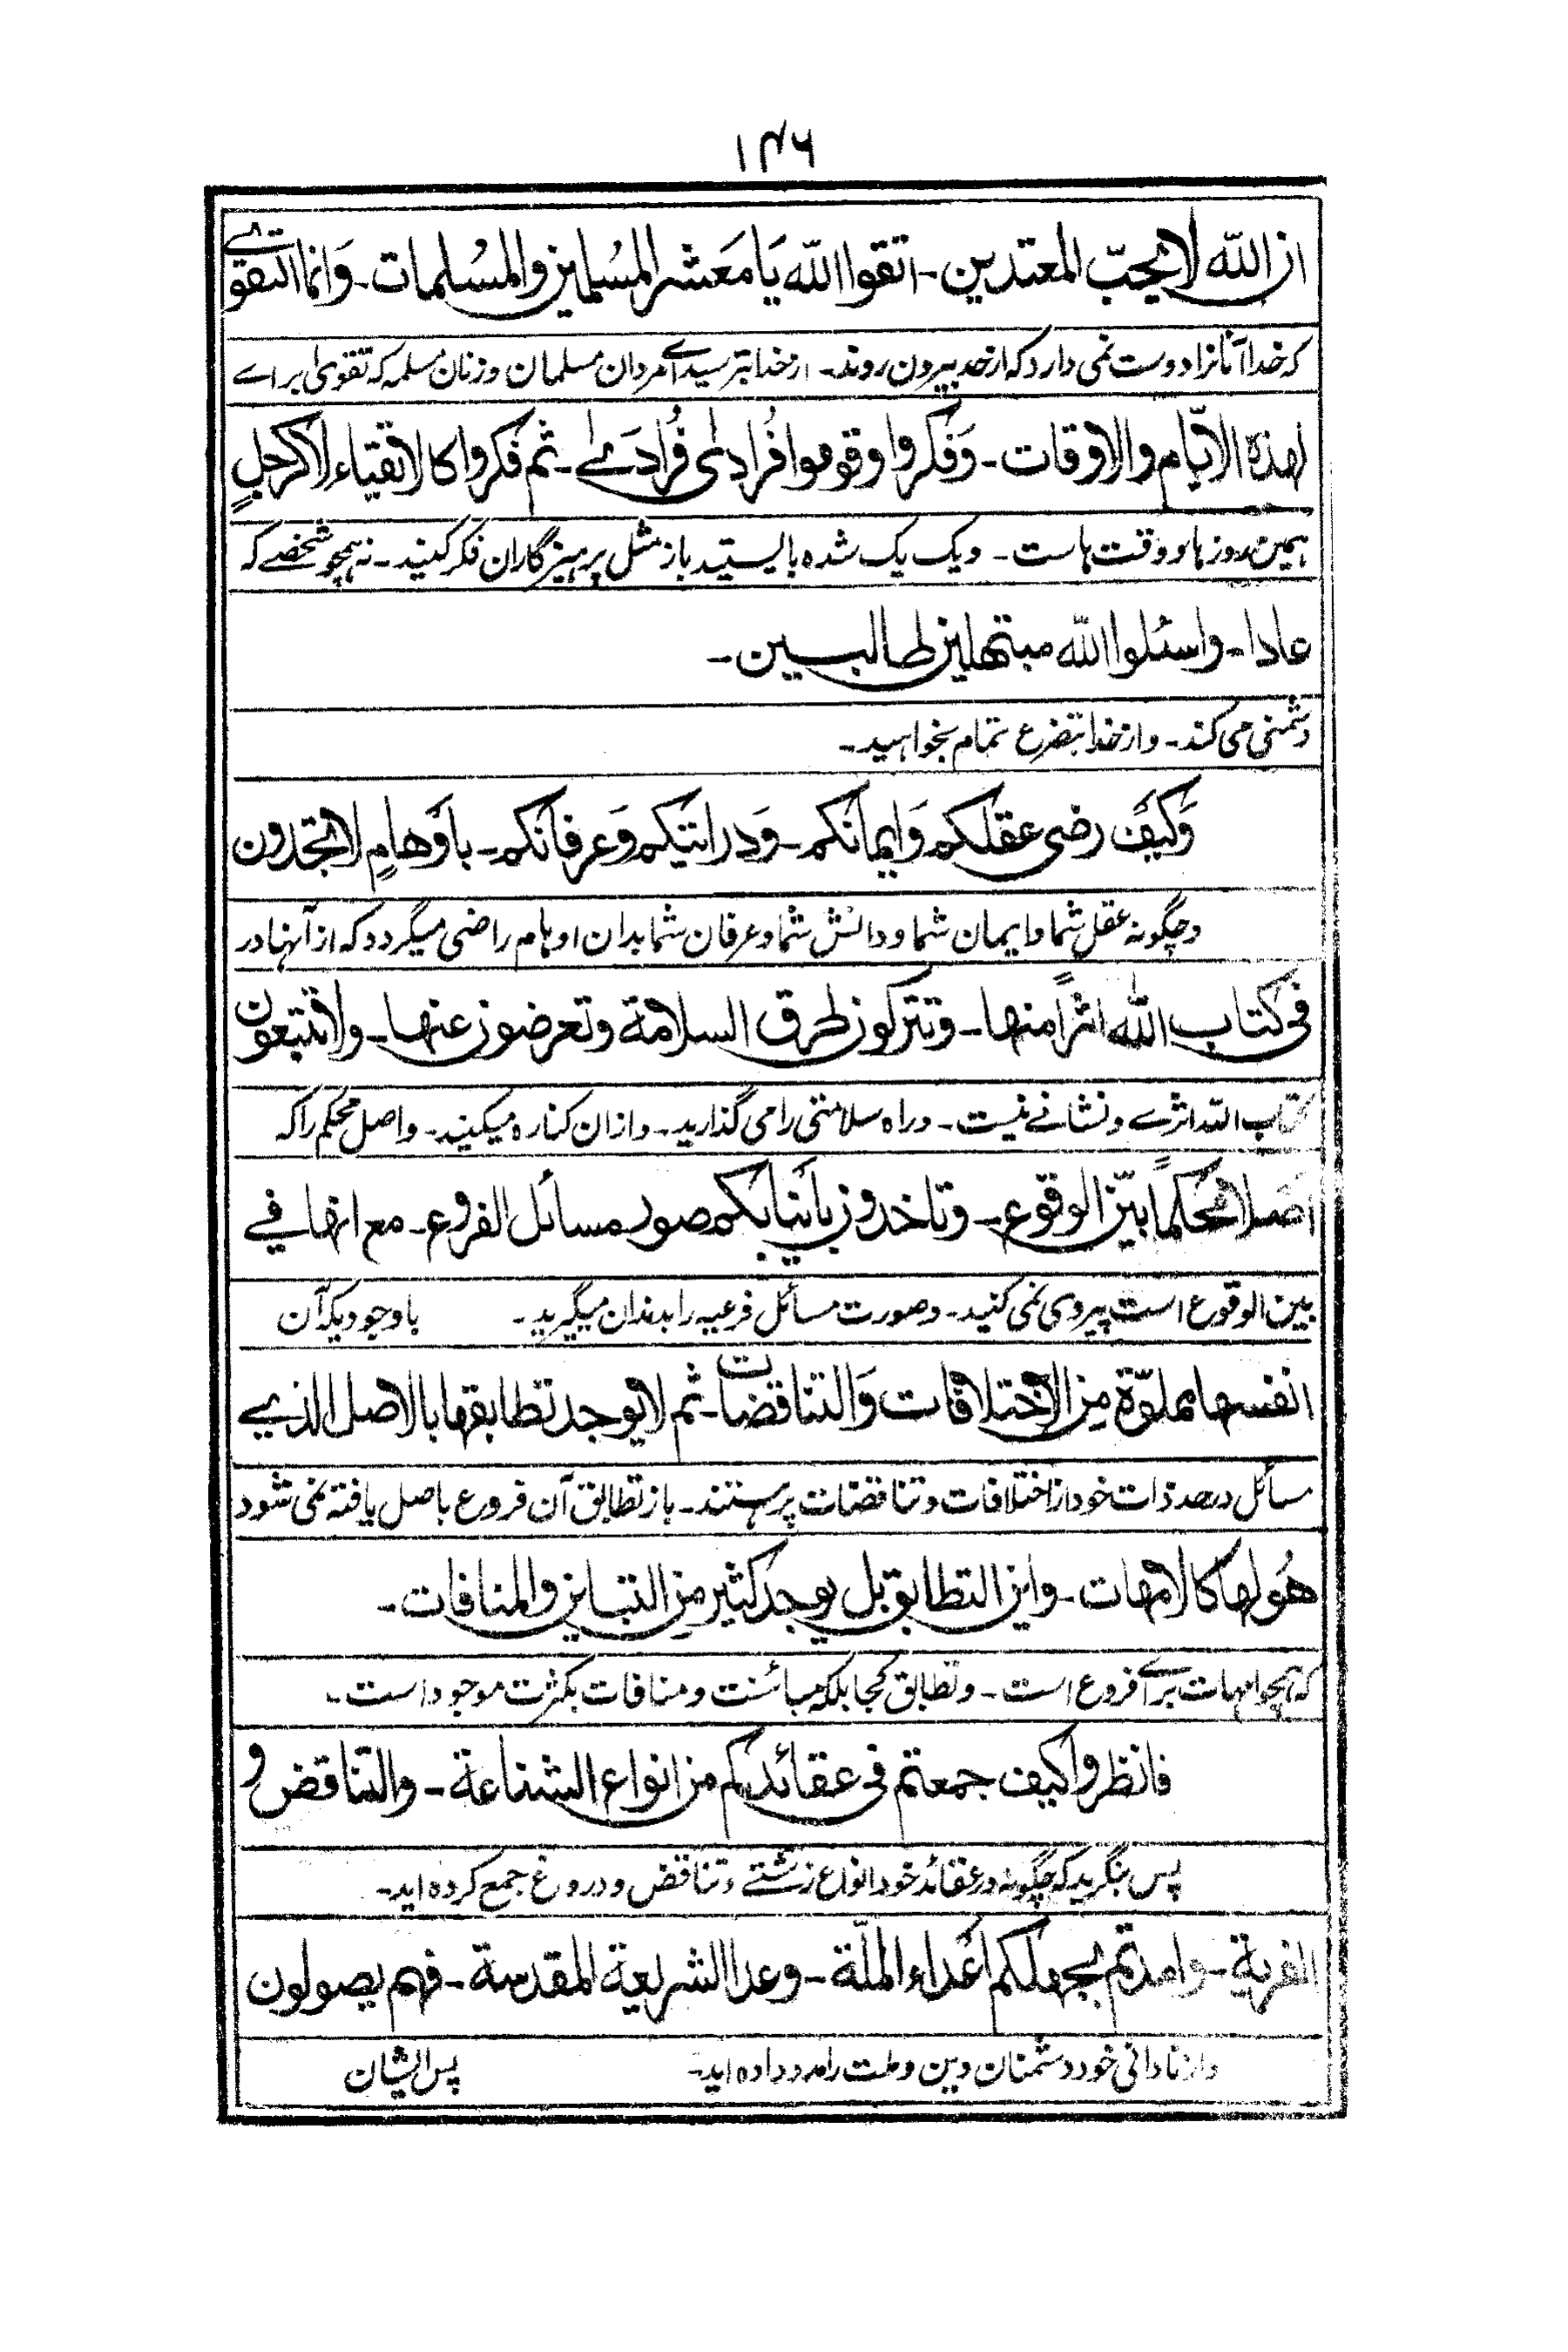 ۱۴۶
ان الله لا يحبّ المعتدين۔ اتقوا الله يَا مَعَشر المسُلمين والمسُلمات۔ وَانما التقوے
که خدا آنانرا دوست نمی دارد که از حد بیرون روند۔ از خدا بترسید اے مردان مسلمان و زنان مسلمه که تقویٰ براے
لهذه الايّام والاوقات۔ وَفكروا وقوموا فُرادٰى فُرادَےٰ۔ ثم فكروا كالاتقياء لا كرجلٍ
ہمین روزہا و وقت ہاست۔ و یک یک شدہ بایستید باز مثل پرہیزگاران فکر کنید۔ نہ ہمچو شخصے کہ
عادا۔ واسئلوا الله مبتهلين طالبين۔
دشمنی می کند۔ و از خدا بتضرع تمام بخواہید۔
وَكيفَ رضى عقلكم وَايمانكم۔ وَدرايتكم وَعرفانكم۔ باَوهامٍ لا تجدون
و چگونہ عقل شما و ایمان شما و دانش شما و عرفان شما بدان اوہام راضی میگردد کہ از آنہا در
فى كتاب الله اثرًا منها۔ وتتركون طرق السلامة وتعرضون عنها۔ ولا تتبعون
کتاب اللہ اثرے و نشانے نیست۔ و راہ سلامتی را می گذارید۔ و ازان کنارہ میکنید۔ و اصل محکم را کہ
اَصلا محكمًا بيّن الوقوع۔ وتاخذون بانيابكم صور مسائل الفروع۔ مع انها في
بین الوقوع است پیروی نمی کنید۔ و صورت مسائل فرعیہ را بدندان میگیرید۔ باوجودیکہ آن
انفسها مملوّة مِن الاختلافات وَالتناقضات۔ ثم لا يوجد تطابقها بالاصل الذے
مسائل در حد ذات خود از اختلافات و تناقضات پر ہستند۔ باز تطابق آن فروع باصل یافتہ نمی شود
هُو لها كالامهات۔ واين التطابق بل يوجد كثير مِن التباين والمنافات۔
کہ ہمچو امہات براے فروع است۔ و تطابق کجا بلکہ مبائنت و منافات بکثرت موجود است۔
فانظروا كيف جمعتم فى عقائدكم من انواع الشناعة۔ والتناقض و
پس بنگرید کہ چگونہ در عقائد خود انواع زشتے و تناقض و دروغ جمع کردہ اید۔
الفرية۔ وامدتم بجهلكم اَعداء الملّة۔ وعدا الشريعة المقدسة۔ فهم يصولون
و از نادانی خود دشمنان دین و ملت را مدد دادہ اید۔ پس ایشان